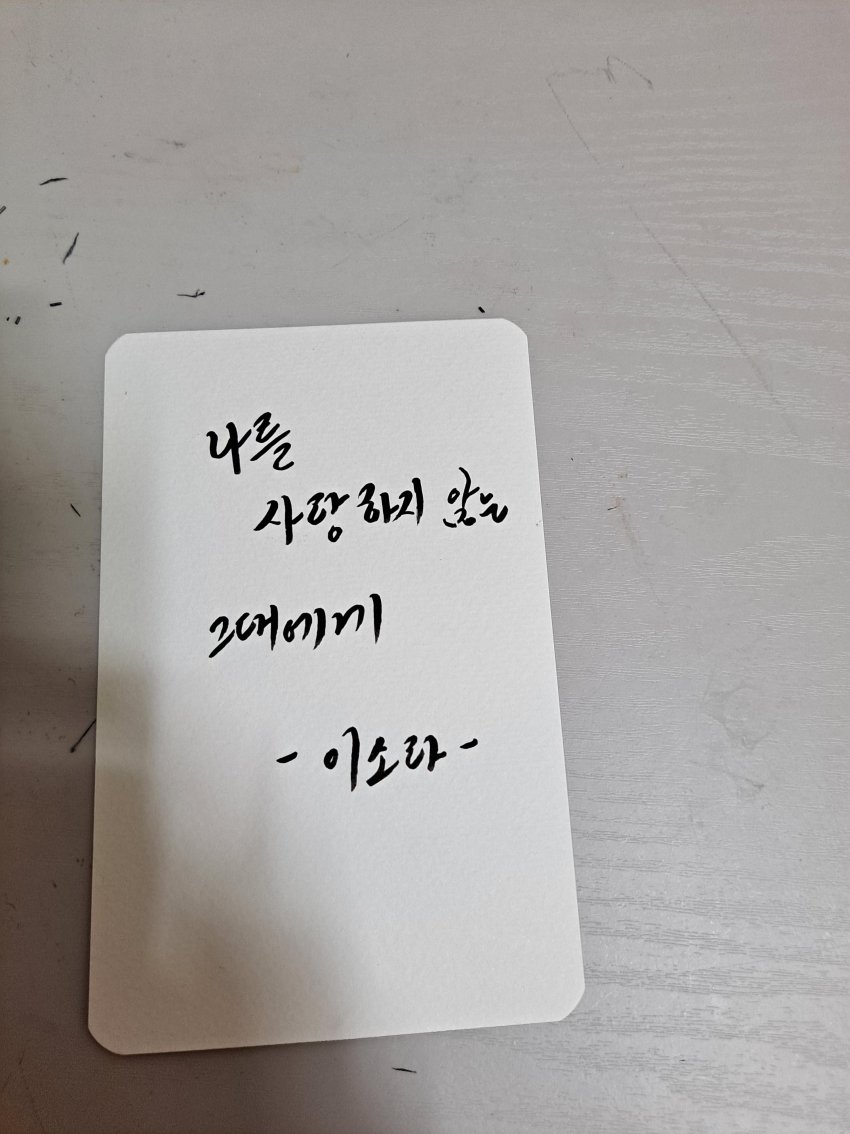 나를
사랑하지 않는
그대에게
- 이소라 -